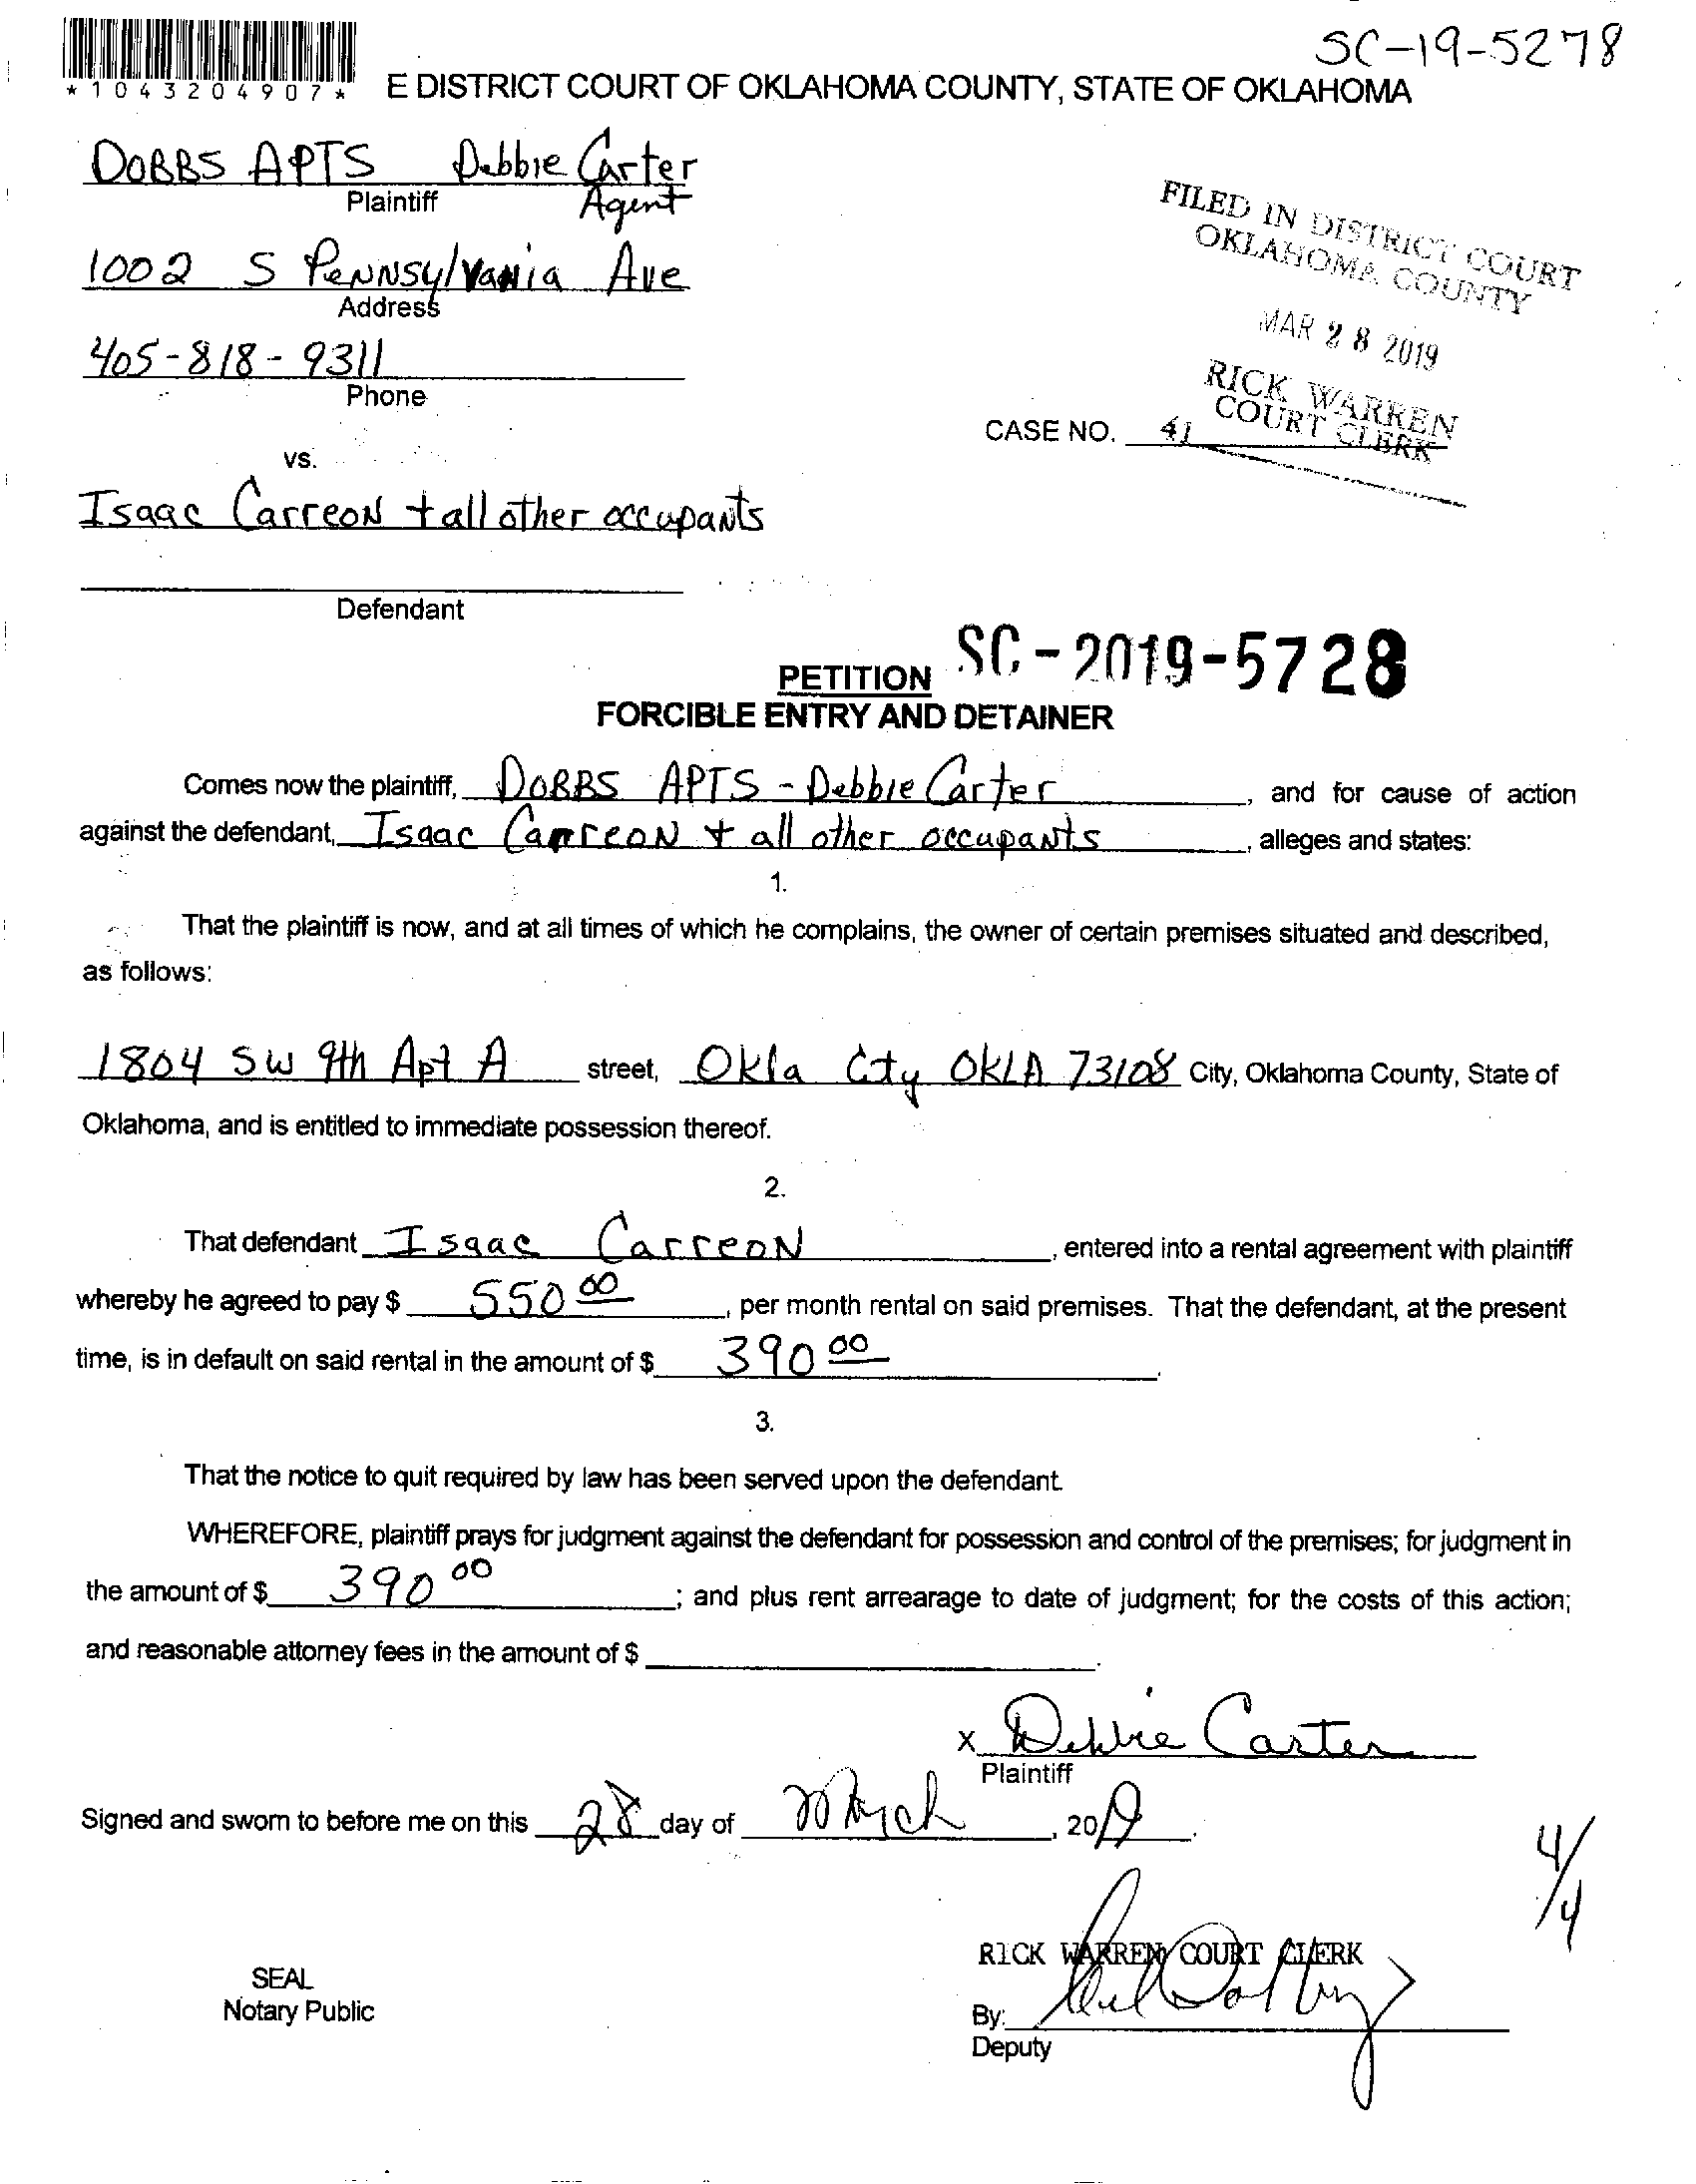 SC-19-5278
*1043204907*
E DISTRICT COURT OF OKLAHOMA COUNTY, STATE OF OKLAHOMA
DOBBS APTS Debbie Carter
Plaintiff Agent
1002 S Pennsylvania Ave
Address
405-818-9311
Phone
FILED IN DISTRICT COURT
OKLAHOMA COUNTY
MAR 28 2019
RICK WARREN
COURT CLERK
CASE NO. 41
vs.
Isaac Carreon + all other occupants
Defendant
SC-2019-5728
PETITION
FORCIBLE ENTRY AND DETAINER
Comes now the plaintiff, DOBBS APTS - Debbie Carter, and for cause of action
against the defendant, Isaac Carreon + all other occupants, alleges and states:
1.
That the plaintiff is now, and at all times of which he complains, the owner of certain premises situated and described,
as follows:
1804 SW 9th Apt A street, Okla City OKLA 73108 City, Oklahoma County, State of
Oklahoma, and is entitled to immediate possession thereof.
2.
That defendant Isaac Carreon, entered into a rental agreement with plaintiff
whereby he agreed to pay $ 550 00, per month rental on said premises. That the defendant, at the present
time, is in default on said rental in the amount of $ 390 00.
3.
That the notice to quit required by law has been served upon the defendant.
WHEREFORE, plaintiff prays for judgment against the defendant for possession and control of the premises; for judgment in
the amount of $ 390 00; and plus rent arrearage to date of judgment; for the costs of this action;
and reasonable attorney fees in the amount of $ .
X Debbie Carter
Plaintiff
Signed and sworn to before me on this 28 day of March, 2019.
4/4
RICK WARREN COURT CLERK
SEAL
Notary Public
By:
Deputy